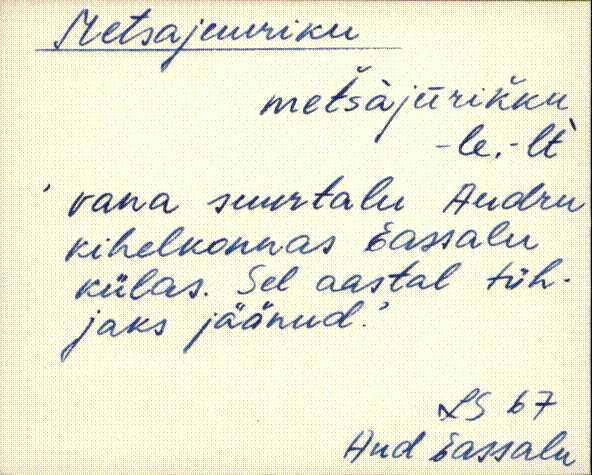 Metsajuuriku
metšàjürikku
-le, -lt̀
'vana suurtalu Audru
kihelkonnas Eassalu
külas. Sel aastal tüh-
jaks jäänud.'
LS 67
Aud Eassalu